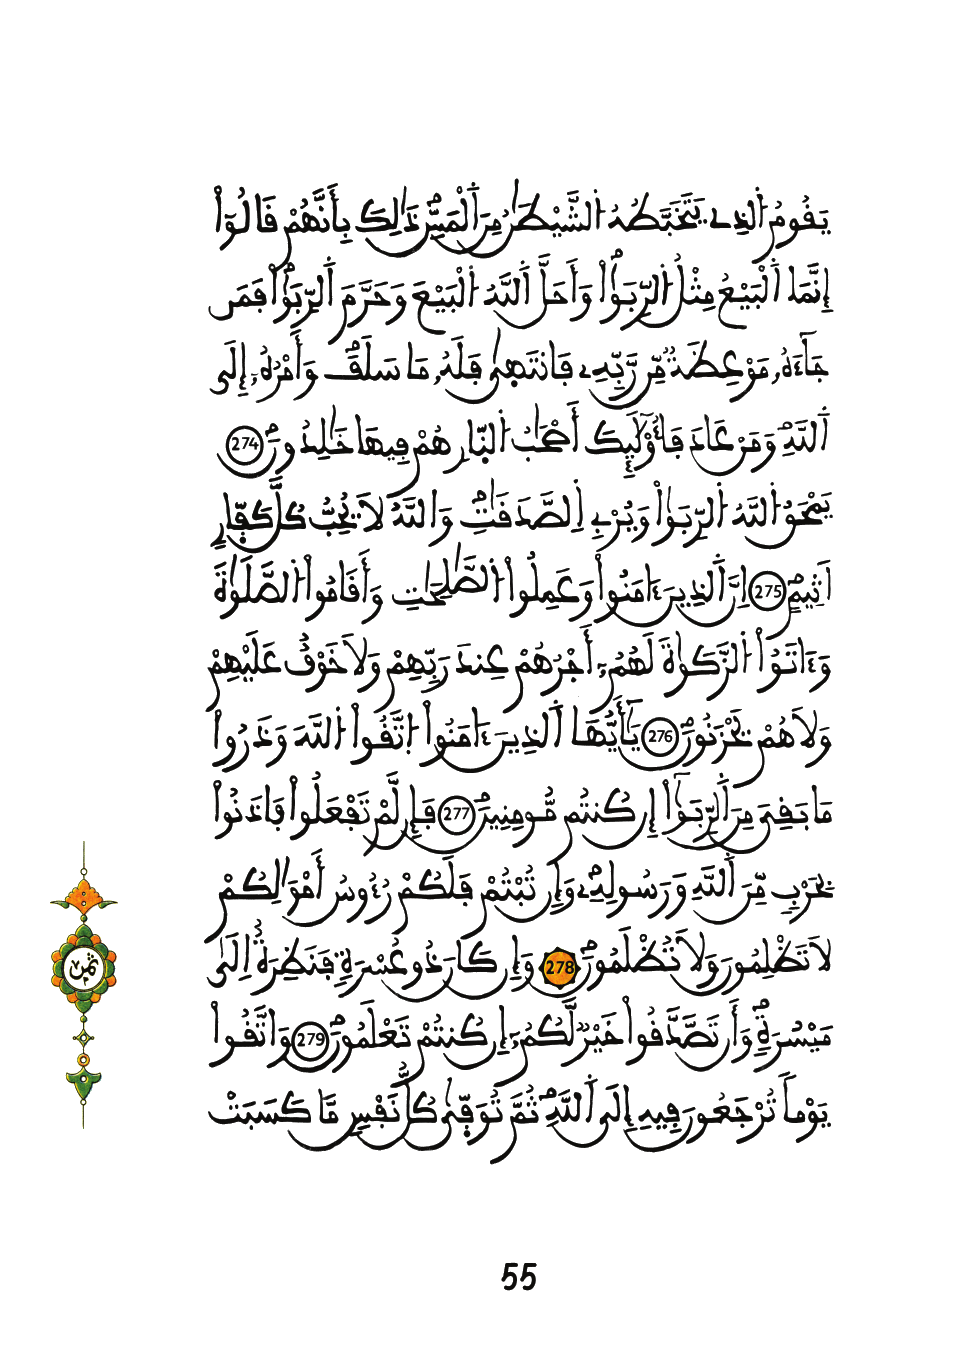 يَقُومُ اُ۬لذِے يَتَخَبَّطُهُ اُ۬لشَّيْطَٰنُ مِنَ اَ۬لْمَسِّۖ ذَٰلِكَ بِأَنَّهُمْ قَالُوٓاْ
إِنَّمَا اَ۬لْبَيْعُ مِثْلُ اُ۬لرِّبَوٰاْۖ وَأَحَلَّ اَ۬للَّهُ اُ۬لْبَيْعَ وَحَرَّمَ اَ۬لرِّبَوٰاْۖ فَمَن
جَآءَهُۥ مَوْعِظَةٞ مِّن رَّبِّهِۦ فَانتَهىٰ فَلَهُۥ مَا سَلَفَۖ وَأَمْرُهُۥٓ إِلَى
اَ۬للَّهِۖ وَمَنْ عَادَ فَأُوْلَٰٓئِكَ أَصْحَٰبُ اُ۬لنّ۪ارِ هُمْ فِيهَا خَٰلِدُونَۖ 274
يَمْحَقُ اُ۬للَّهُ اُ۬لرِّبَوٰاْ وَيُرْبِے اِ۬لصَّدَقَٰتِۖ وَاللَّهُ لَا يُحِبُّ كُلَّ كَفّ۪ارٍ
اَثِيمٍۖ 275 اِنَّ اَ۬لذِينَ ءَامَنُواْ وَعَمِلُواْ اُ۬لصَّٰلِحَٰتِ وَأَقَامُواْ اُ۬لصَّلَوٰةَ
وَءَاتَوُاْ اُ۬لزَّكَوٰةَ لَهُمُۥٓ أَجْرُهُمْ عِندَ رَبِّهِمْ وَلَا خَوْفٌ عَلَيْهِمْ
وَلَا هُمْ يَحْزَنُونَۖ 276 يَٰٓأَيُّهَا اَ۬لذِينَ ءَامَنُواْ اُ۪تَّقُواْ اُ۬للَّهَ وَذَرُواْ
مَا بَقِيَ مِنَ اَ۬لرِّبَوٰٓاْ إِن كُنتُم مُّومِنِينَۖ 277 فَإِن لَّمْ تَفْعَلُواْ فَاذَنُواْ
بِحَرْبٖ مِّنَ اَ۬للَّهِ وَرَسُولِهِۦۖ وَإِن تُبْتُمْ فَلَكُمْ رُءُوسُ أَمْوَٰلِكُمْ
لَا تَظْلِمُونَ وَلَا تُظْلَمُونَۖ 278 وَإِن كَانَ ذُو عُسْرَةٖ فَنَظِرَةٌ اِلَىٰ
مَيْسُرَةٖۖ وَأَن تَصَّدَّقُواْ خَيْرٞ لَّكُمُۥٓ إِن كُنتُمْ تَعْلَمُونَۖ 279 وَاتَّقُواْ
يَوْماٗ تُرْجَعُونَ فِيهِ إِلَى اَ۬للَّهِۖ ثُمَّ تُوَفّ۪ىٰ كُلُّ نَفْسٖ مَّا كَسَبَتْ
ثمن
55